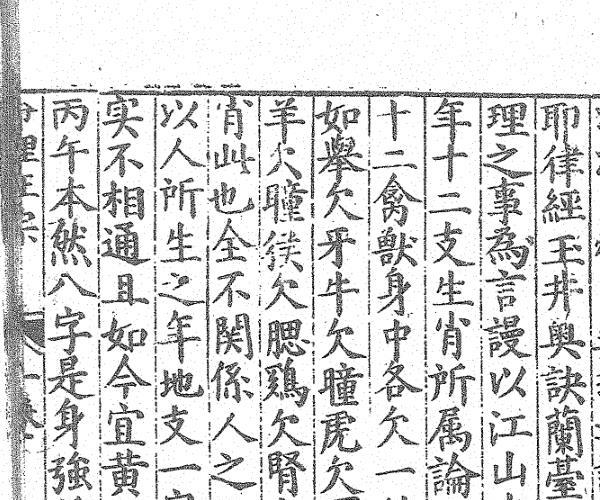 耶律經玉井奧訣蘭臺
理之事為言謾以江山
年十二支生肖所属論
十二禽獸身中各欠一
如舉欠牙牛欠瞳虎欠
羊欠瞳猴欠腮鶏欠腎
肖此也全不関係人之
以人所生之年地支一
実不相通且如今宜黄
丙午本然八字是身強